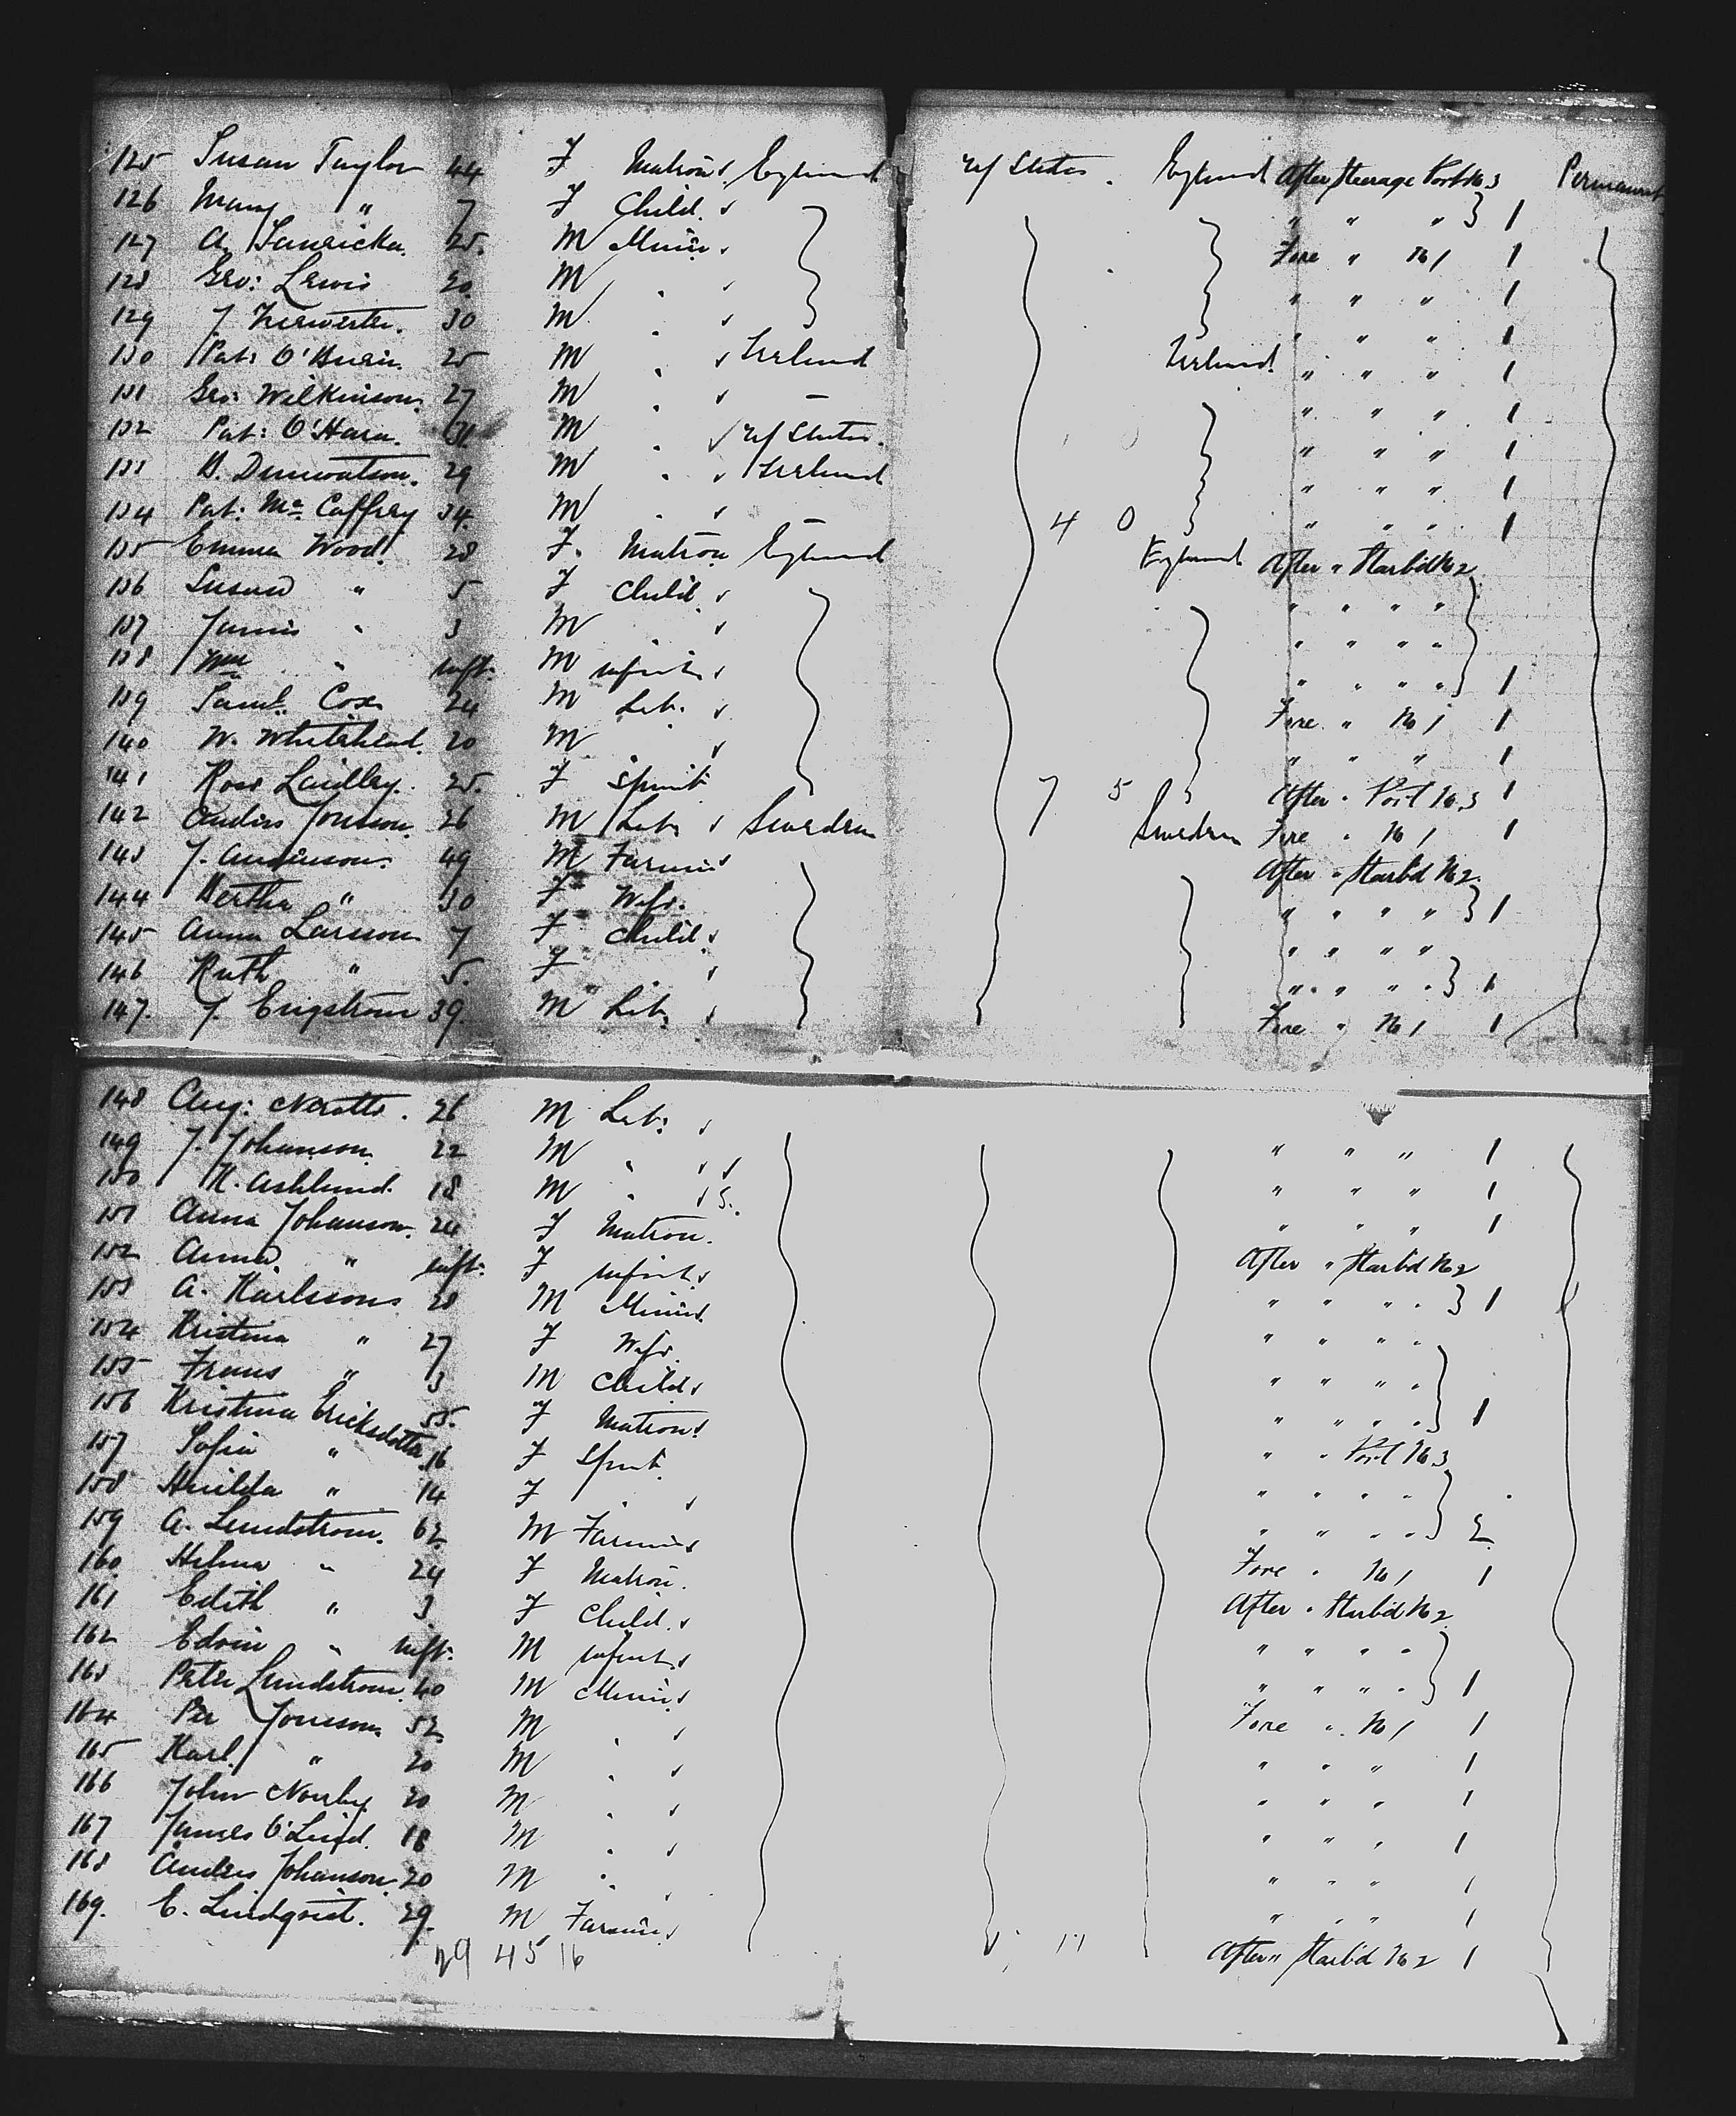 125 Susan Taylor 44 F Matron England U/States England After Steerage Port No 3 Permanent
126 Mary " 7 F Child " " " } 1
127 A. 25. M Miner Fore " No 1 1
128 Geo: Lewis 20 M " " " " 1
129 J. 30 M " " " " 1
130 Pat: O'Brien 25 M " Ireland Ireland " " " 1
131 Geo: Wilkinson 27 M " " " " " 1
132 Pat: O'Hara 31 M " U/States " " " 1
133 29 M " Ireland " " " 1
134 Pat: Mc Caffrey 34 M " " 4 0 " " " 1
135 Emma Wood 28 F Matron England England After " Starbd No 2
136 Susan " 5 F Child " " " "
137 James " 3 M " " " " "
138 Wm " inft. M infant " " " " } 1
139 Saml. Cox 24 M Lab: Fore " No 1 1
140 W. Whitehead 20 M " " " " 1
141 Rose Lindley 25. F Spinst 7 5 After " Port No. 3 1
142 Anders Jonsson 26 M Lab: Sweden Sweden Fore " No 1 1
143 J. 49 M Farmer After " Starbd No 2
144 Bertha " 30 F Wife " " " " } 1
145 Anna Larsson 7 F Child " " " "
146 Ruth " 5. F " " " " " } 1
147. J. Engstrom 39. M Lab: Fore " No 1 1
148 Aug: 26 M Lab: " " " 1
149 J. Johanson 22 M " " " " 1
150 K. Ashlund 18 M " " " " 1
151 Anna Johanson 24 F Matron After " Starbd No 2
152 Anna " inft. F infant " " " " } 1
153 A. Karlsson 28 M Miner " " " "
154 Kristina " 27 F Wife " " " "
155 Frans " 3 M Child " " " " } 1
156 Kristina Ericksdotter 55. F Matron " " Port No 3
157 Sofia " 16 F Spinst " " " "
158 Hulda " 14 F " " " " " } 2
159 A. Lundstrom. 62 M Farmer Fore " No 1 1
160 Helma " 24 F Matron After " Starbd No 2
161 Edith " 3 F Child " " " "
162 Edvin " inft. M infant " " " " } 1
163 Peter Lundstrom 40 M Miner Fore " No 1 1
164 Per Jonsson 52 M " " " " 1
165 Karl " 20 M " " " " 1
166 John Norby 20 M " " " " 1
167 James O'Lind. 18 M " " " " 1
168 Anders Johanson 20 M " " " " 1
169. E. Lindqvist. 29. M Farmer After " Starbd No 2 1
29 45 16 11